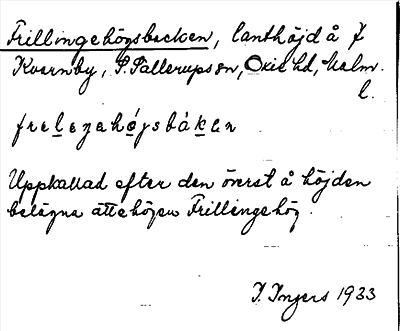 Frillingehögsbacken, lanthöjd å
Kvarnby, S. Sallerups sn, Oxie hd, Malm.
l.
Uppkallad efter den överst å höjden
belägna ättehögen Frillingehög.
I. Ingers 1933